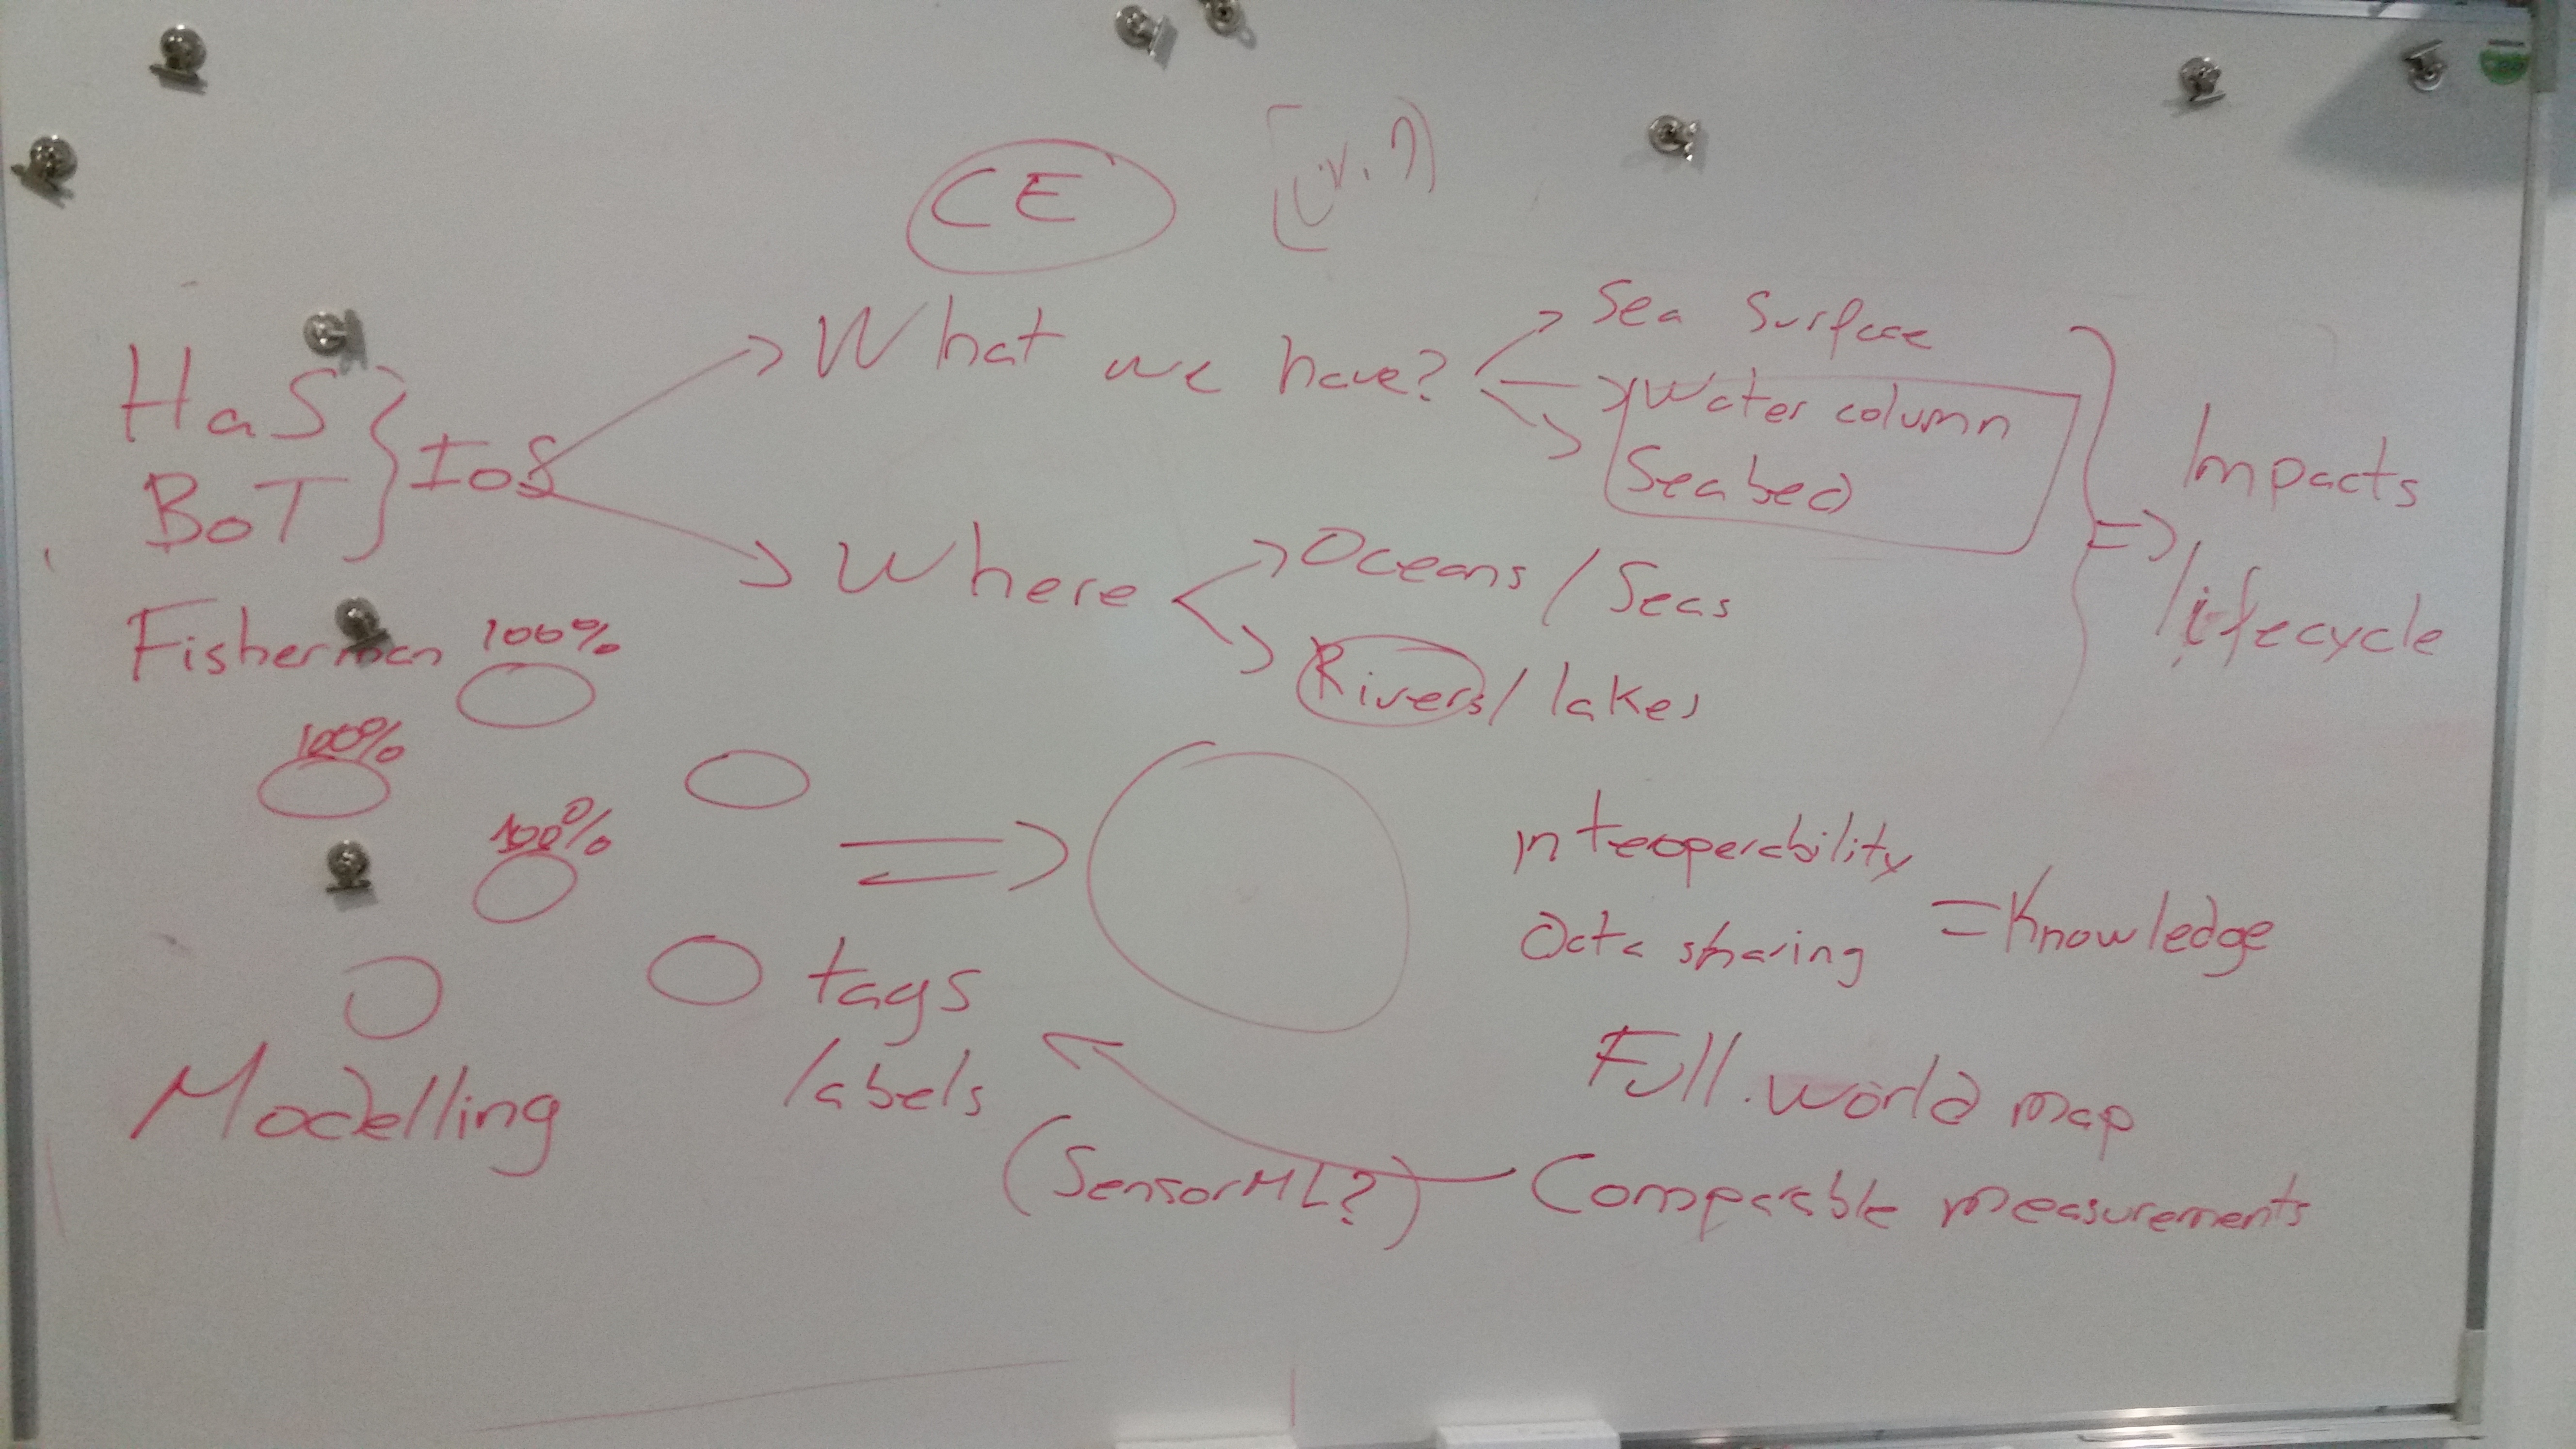 CE
HaS
BoT
IoS
What we have?
Sea Surface
Water column
Seabed
Where
Oceans / Seas
Rivers / lakes
Impacts
lifecycle
Fisherman
100%
100%
100%
tags
labels
Modelling
Interoperability
Data sharing
= Knowledge
Full world map
(SensorML?)
Comparable measurements